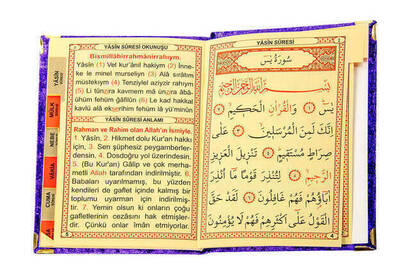 YÂSÎN SÛRESİ OKUNUŞU
Bismillâhirrahmânirrahıym.
Yâsîn (1) Vel kur'ânil hakiym (2) İnne-
ke le minel murseliyn (3) Alâ sırâtım
müstekıym (4) Tenziylel aziyzir rahıym
(5) Li tünzira kavmem mâ ünzira âbâ-
ühüm fehüm ğâfilûn (6) Le kad hakkal
kavlü alâ ekserihim fehüm lâ yü'minûn
YÂSÎN SÛRESİ ANLAMI
Rahman ve Rahim olan Allah'ın İsmiyle.
1. Yâsîn. 2. Hikmet dolu Kur'an hakkı
için, 3. Sen şüphesiz peygamberler-
densin. 4. Dosdoğru yol üzerindesin.
5. (Bu Kur'an) Gâlip ve çok merha-
metli Allah tarafından indirilmiştir. 6.
Babaları uyarılmamış, bu yüzden
kendileri de gaflet içinde kalmış bir
toplumu uyarman için indirilmiş-
tir. 7. Yemin olsun ki onların çoğu
gafletlerinin cezasını hak etmişler-
dir. Çünkü onlar îman etmiyorlar.
YÂSÎN
MÜLK
NEBE
VAKIA
CUMA
YÂSÎN SÛRESİ
سُورَةُ يٰسٓ
بِسْمِ اللّٰهِ الرَّحْمٰنِ الرَّحِيمِ
يٰسٓ ۝١ وَالْقُرْاٰنِ الْحَكِيمِ ۝٢
اِنَّكَ لَمِنَ الْمُرْسَلِينَ ۝٣ عَلٰى
صِرَاطٍ مُسْتَقِيمٍ ۝٤ تَنْزِيلَ الْعَزِيزِ
الرَّحِيمِ ۝٥ لِتُنْذِرَ قَوْمًا مَٓا اُنْذِرَ
اٰبَٓاؤُهُمْ فَهُمْ غَافِلُونَ ۝٦ لَقَدْ حَقَّ
الْقَوْلُ عَلٰٓى اَكْثَرِهِمْ فَهُمْ لَا يُؤْمِنُونَ
4